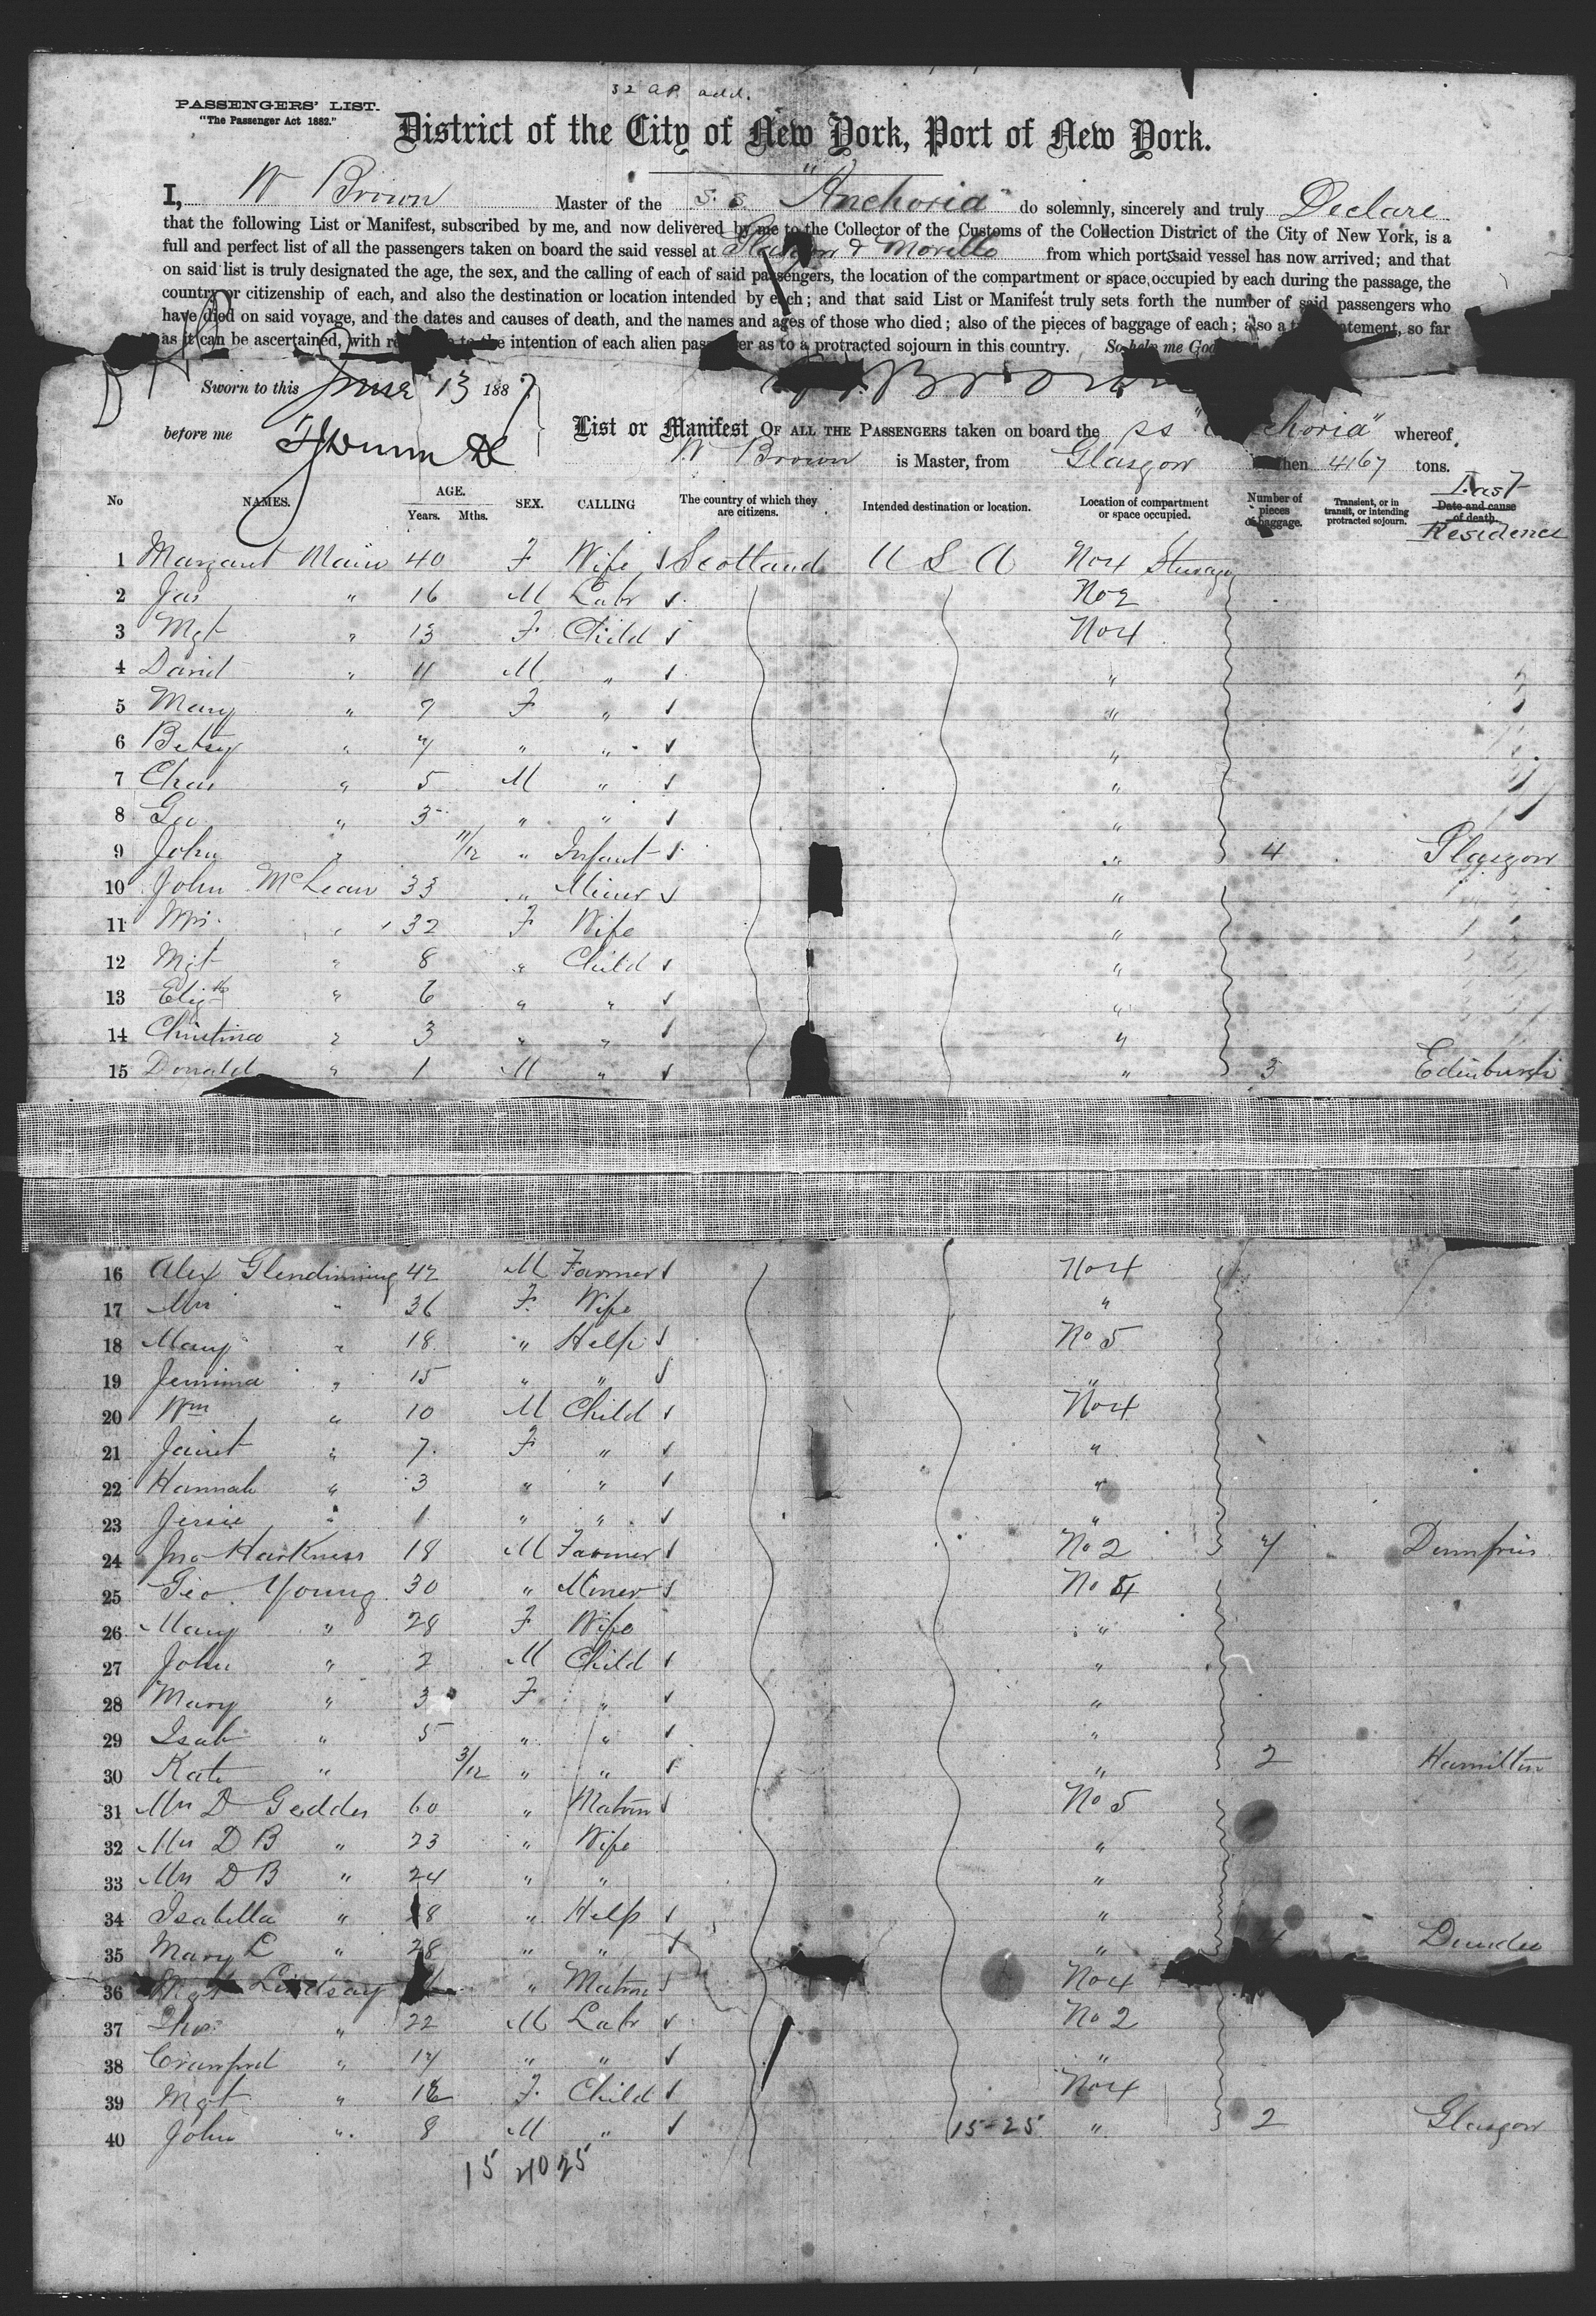 32 ap. add.
PASSENGERS' LIST.
"The Passenger Act 1882."
District of the City of New York, Port of New York.
I, W Brown Master of the S. S. "Anchoria" do solemnly, sincerely and truly Declare
that the following List or Manifest, subscribed by me, and now delivered by me to the Collector of the Customs of the Collection District of the City of New York, is a
full and perfect list of all the passengers taken on board the said vessel at Glasgow & Moville from which ports said vessel has now arrived; and that
on said list is truly designated the age, the sex, and the calling of each of said passengers, the location of the compartment or space occupied by each during the passage, the
country or citizenship of each, and also the destination or location intended by each; and that said List or Manifest truly sets forth the number of said passengers who
have died on said voyage, and the dates and causes of death, and the names and ages of those who died; also of the pieces of baggage of each; also a statement, so far
as it can be ascertained, with intention of each alien passenger as to a protracted sojourn in this country. So help me God
Sworn to this June 13 1887 Brown
before me
List or Manifest OF ALL THE PASSENGERS taken on board the SS "Anchoria" whereof
W Brown is Master, from Glasgow 4167 tons.
No NAMES. AGE. Years. Mths. SEX. CALLING The country of which they are citizens. Intended destination or location. Location of compartment or space occupied. Number of pieces of baggage. Transient, or in transit, or intending protracted sojourn. Date and cause of death. Last Residence
1 Margaret Main 40 F Wife Scotland U S A No 4 Steerage
2 Jas " 16 M Labr No 2
3 Mgt " 13 F Child No 4
4 David " 11 M " "
5 Mary " 9 F " "
6 Betsy " 7 " " "
7 Chas " 5 M " "
8 Geo " 3 " " "
9 John " 11/12 " Infant " 4 Glasgow
10 John McLean 33 " Miner "
11 Mrs " 32 F Wife "
12 Mgt " 8 " Child "
13 Elizth " 6 " " "
14 Christina " 3 " " "
15 Donald " 1 M " " 3 Edinburgh
16 Alex Glendinning 42 M Farmer No 4
17 Mrs " 36 F Wife "
18 Mary " 18 " Help No 5
19 Jemima " 15 " " "
20 Wm " 10 M Child No 4
21 Janet " 7 F " "
22 Hannah " 3 " " "
23 Jessie " 1 " " "
24 Jno Harkness 18 M Farmer No 2 7 Dumfries
25 Geo. Young 30 " Miner No 4
26 Mary " 28 F Wife "
27 John " 2 M Child "
28 Mary " 3 F " "
29 Isab " 5 " " "
30 Kate " 3/12 " " " 2 Hamilton
31 Mrs D Geddes 60 " Matron No 5
32 Mrs D B " 23 " Wife "
33 Mrs D B " 24 " " "
34 Isabella " 18 " Help "
35 Mary C " 28 " " " Dundee
36 Mgt Lindsay " Matron No 4
37 Thos " 22 M Labr No 2
38 Crawford " 17 " " "
39 Mgt " F Child No 4
40 John " 8 M " 15-25 " 2 Glasgow
15 40 25